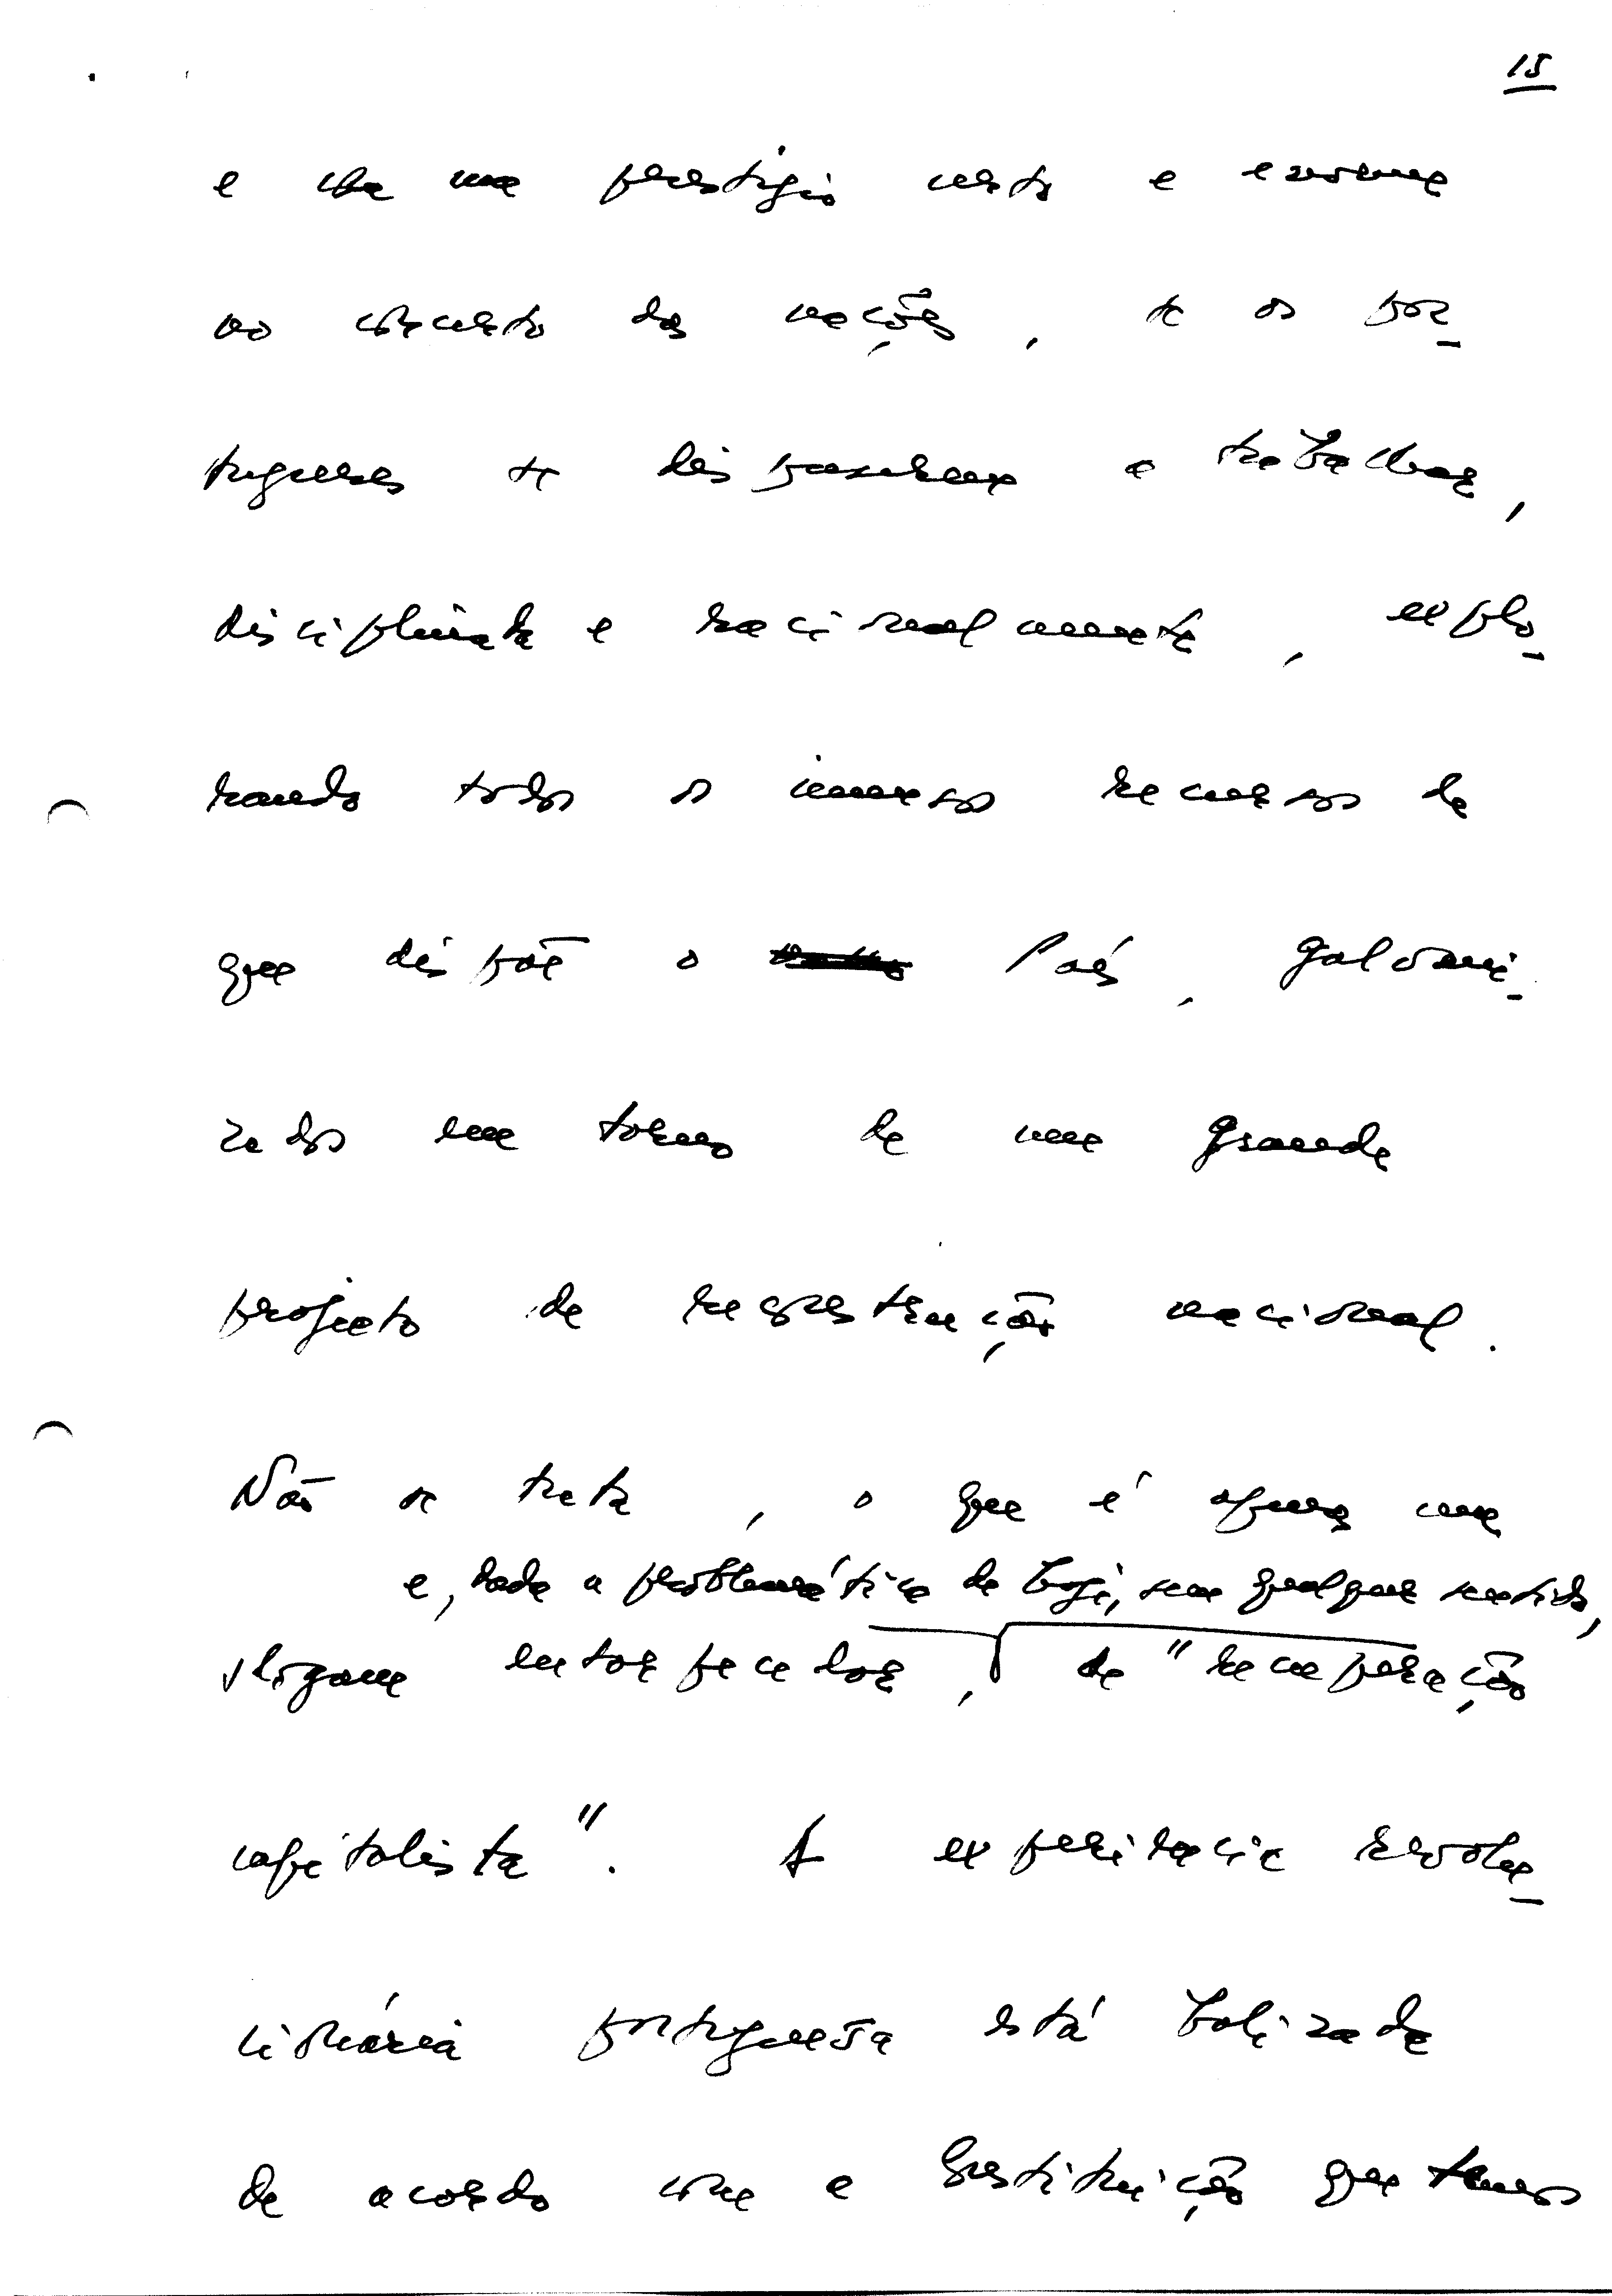 15
e com um prestígio certo e enorme
no concerto das nações, se os por-
tugueses se dispuserem a trabalhar,
disciplinada e racionalmente, explo-
rando todos os imensos recursos de
que dispõe o País, galvani-
zados em torno de um grande
projecto de reconstrução nacional.
Não se trata, o que é apenas um
e, dada a problemática de hoje, sem qualquer sentido,
slogan entorpecedor, de "recuperação
capitalista". A experiência revolu-
cionária portuguesa está balizada
de acordo com a Constituição que temos